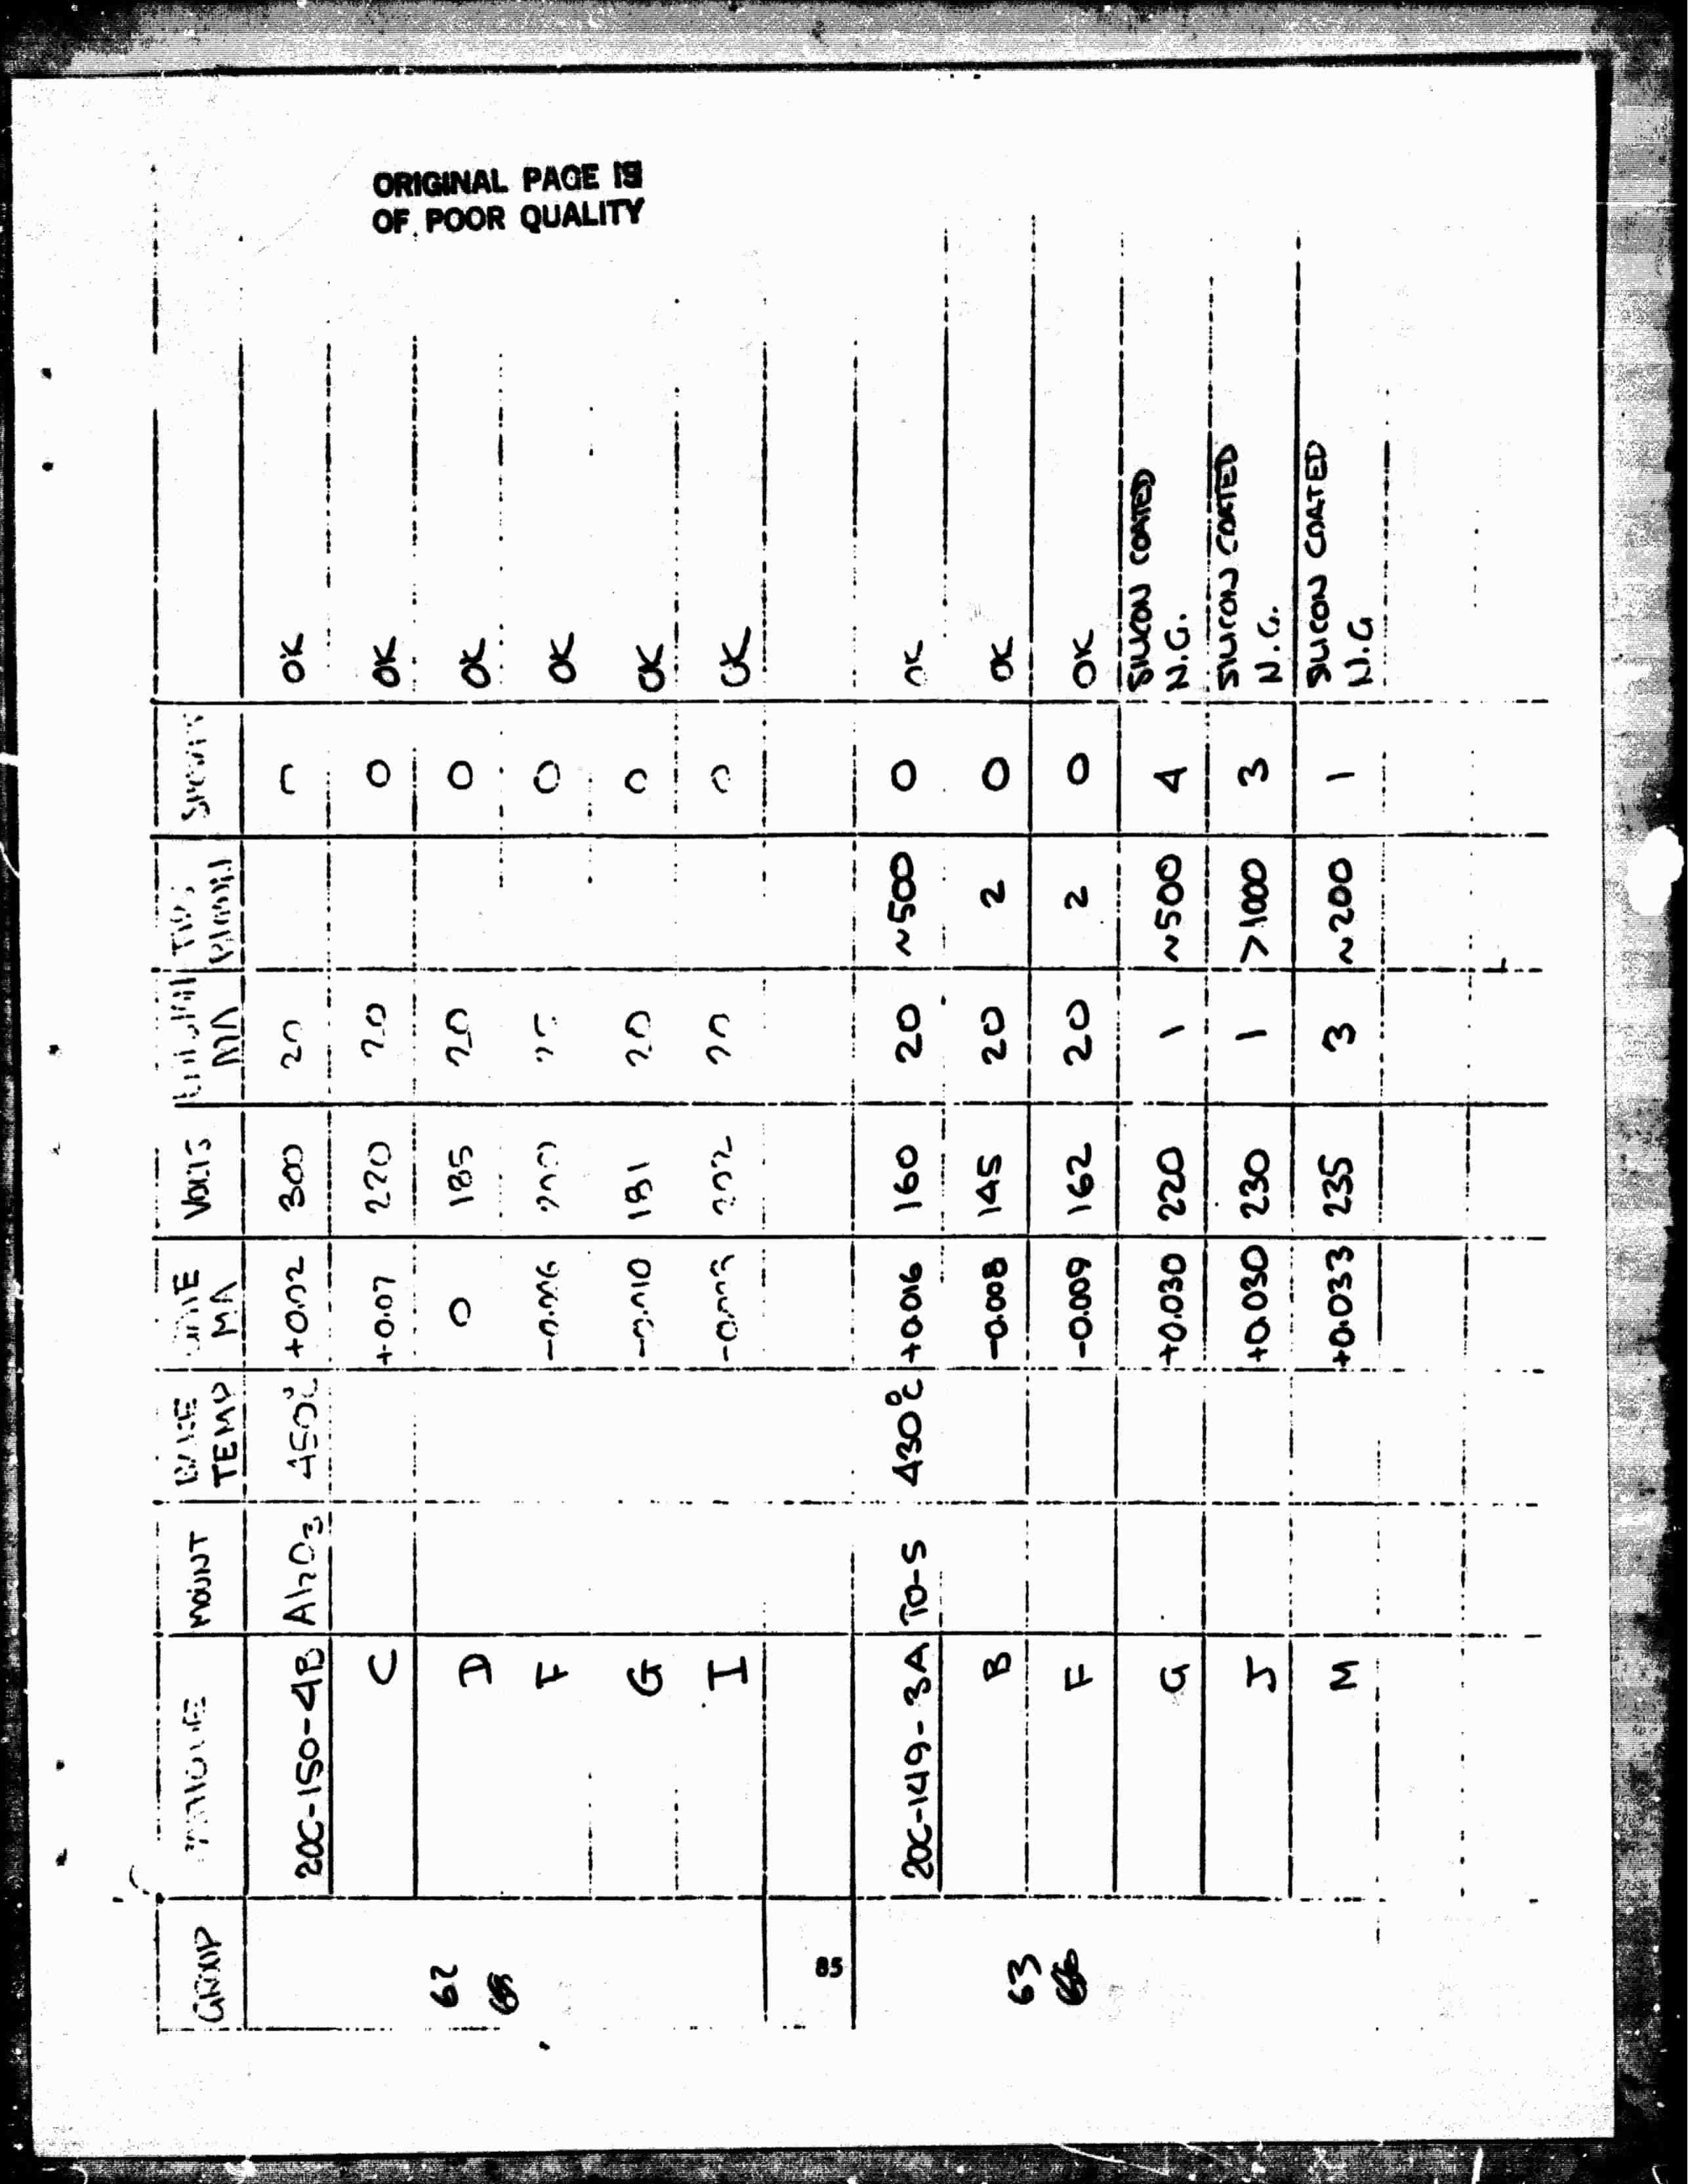 ORIGINAL PAGE IS
OF POOR QUALITY
GROUP MOUNT BAKE TEMP GATE MA VOLTS MA TIPS SHORTS
62 20C-150-4B Al2O3 450°C +0.02 300 20 OK
C +0.07 220 20 0 OK
D 0 185 20 0 OK
F 0 OK
G -0.010 181 20 0 OK
I 202 20 0 OK
85
63 20C-149-3A TO-5 430°C +0.016 160 20 ~500 0 OK
B -0.008 145 20 2 0 OK
F -0.009 162 20 2 0 OK
G +0.030 220 1 ~500 4 SILICON COATED N.G.
J +0.030 230 1 >1000 3 SILICON COATED N.G.
M +0.033 235 3 ~200 1 SILICON COATED N.G